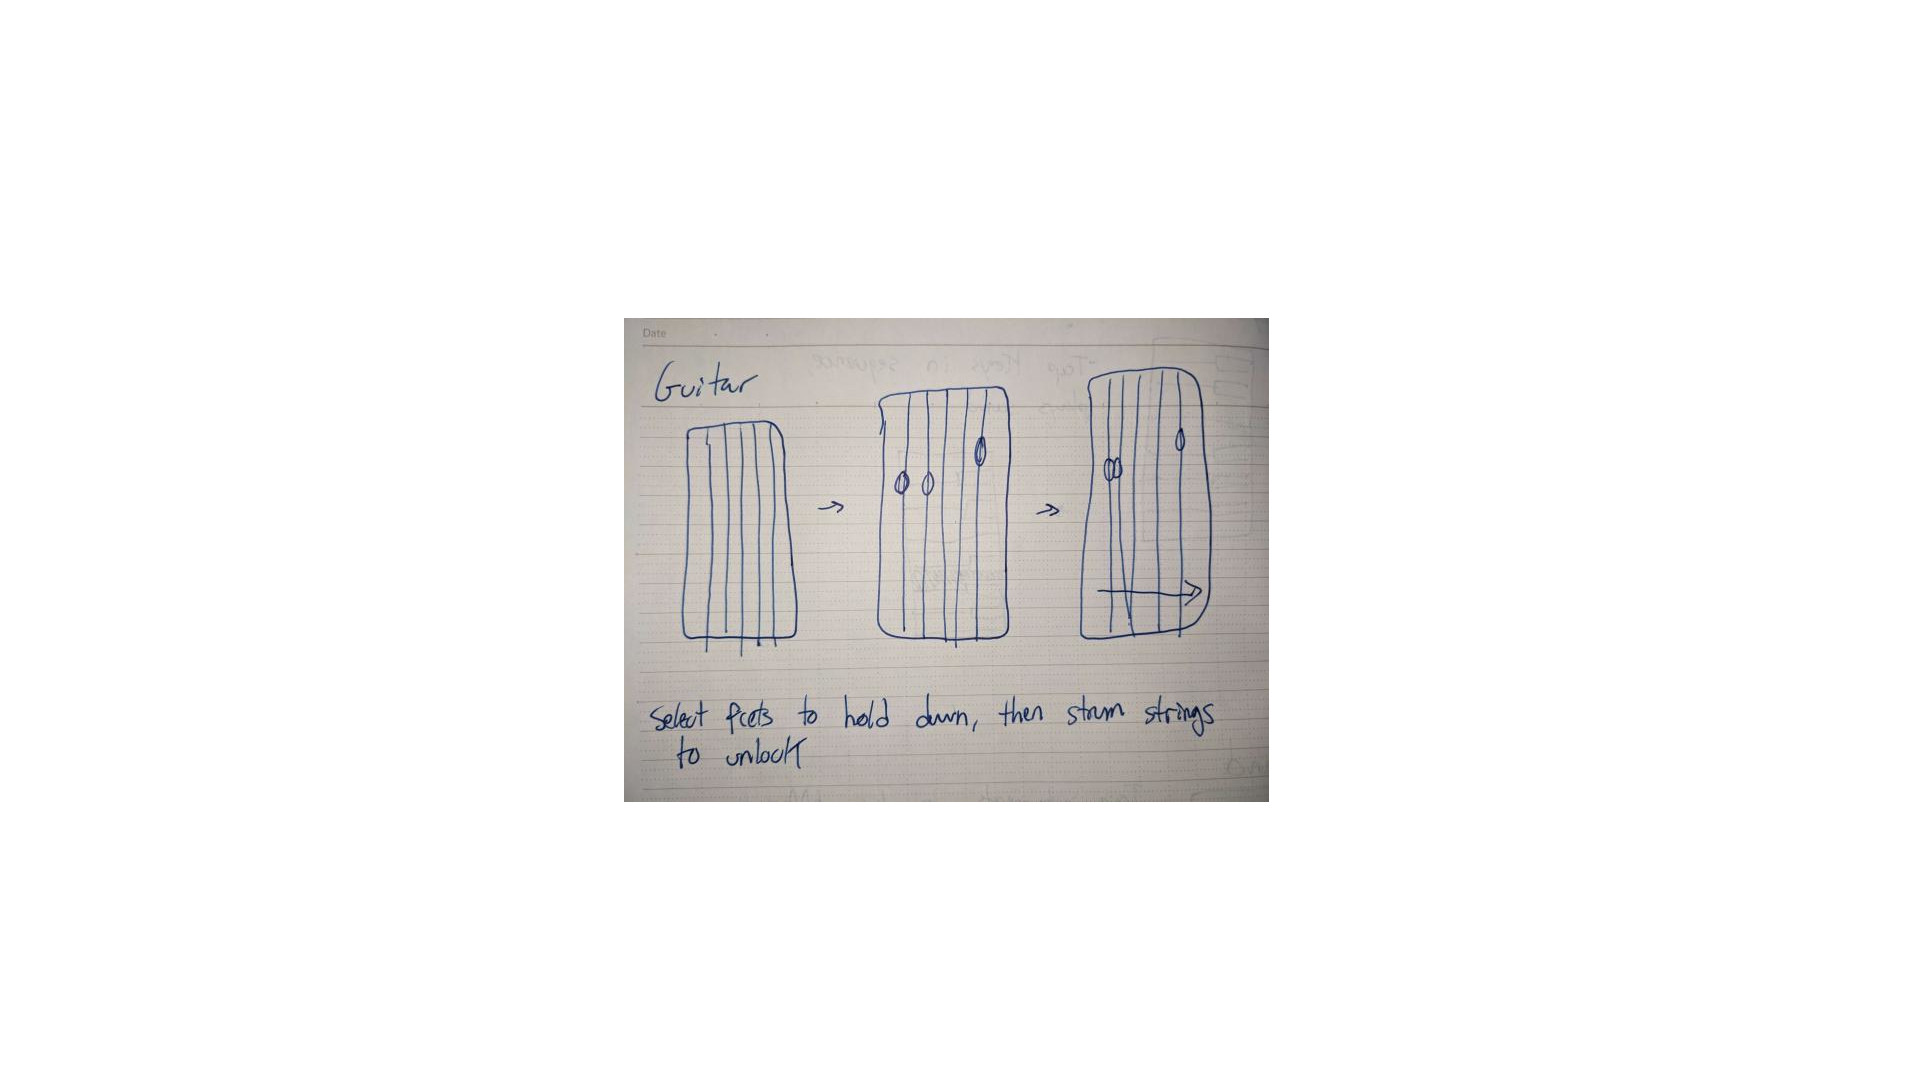 Date
Guitar
Select frets to hold down, then strum strings
to unlock